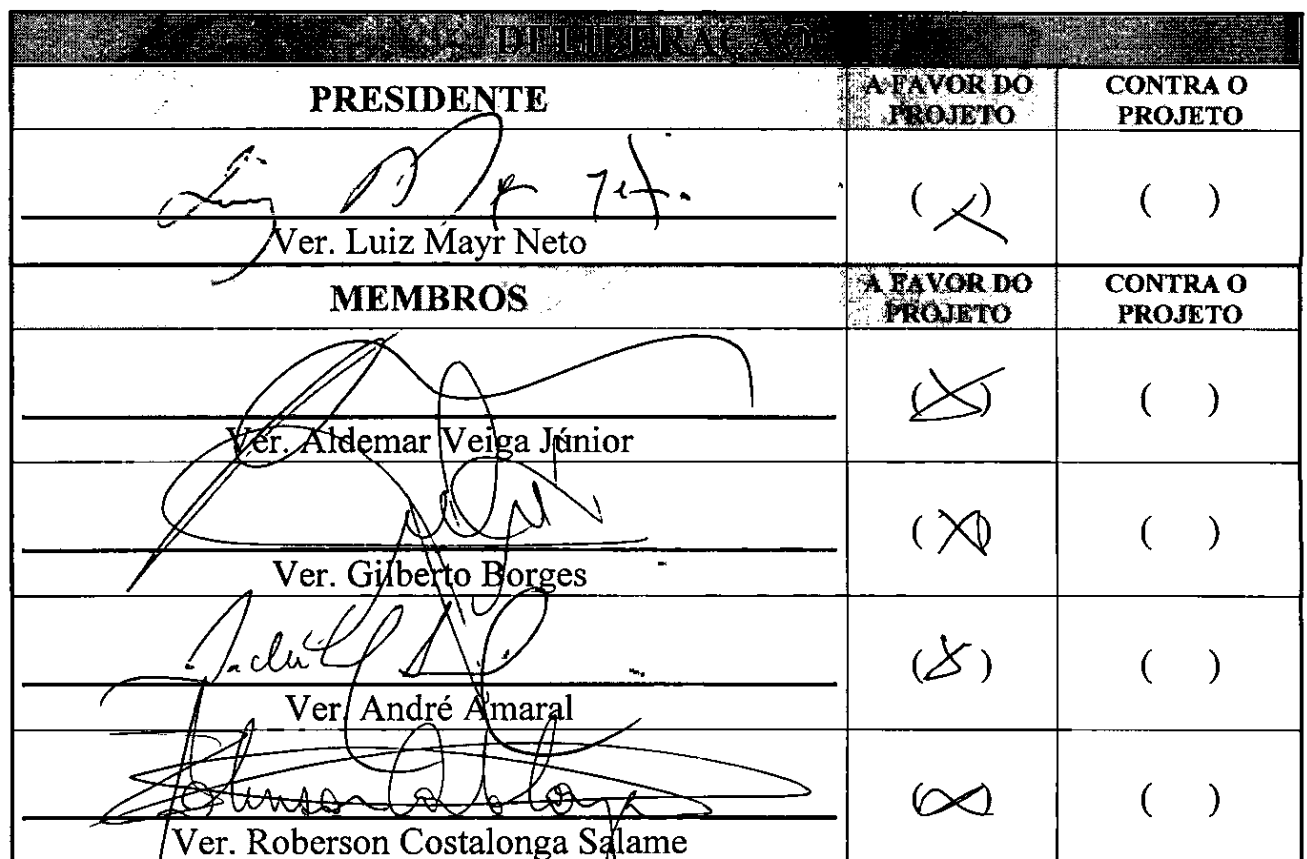 DELIBERAÇÃO
PRESIDENTE
A FAVOR DO PROJETO
CONTRA O PROJETO
( X )
( )
Ver. Luiz Mayr Neto
MEMBROS
A FAVOR DO PROJETO
CONTRA O PROJETO
( X )
( )
Ver. Aldemar Veiga Júnior
( X )
( )
Ver. Gilberto Borges
( X )
( )
Ver. André Amaral
( X )
( )
Ver. Roberson Costalonga Salame